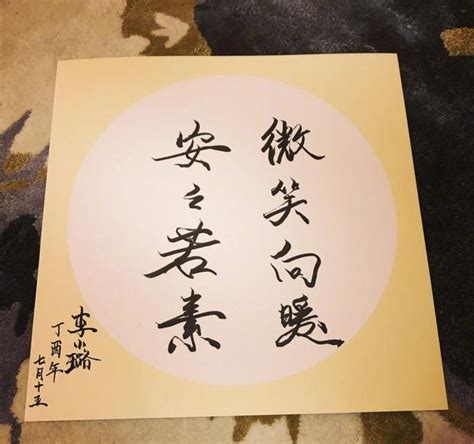 微笑向暖
安之若素
李小璐
丁酉年
七月十五